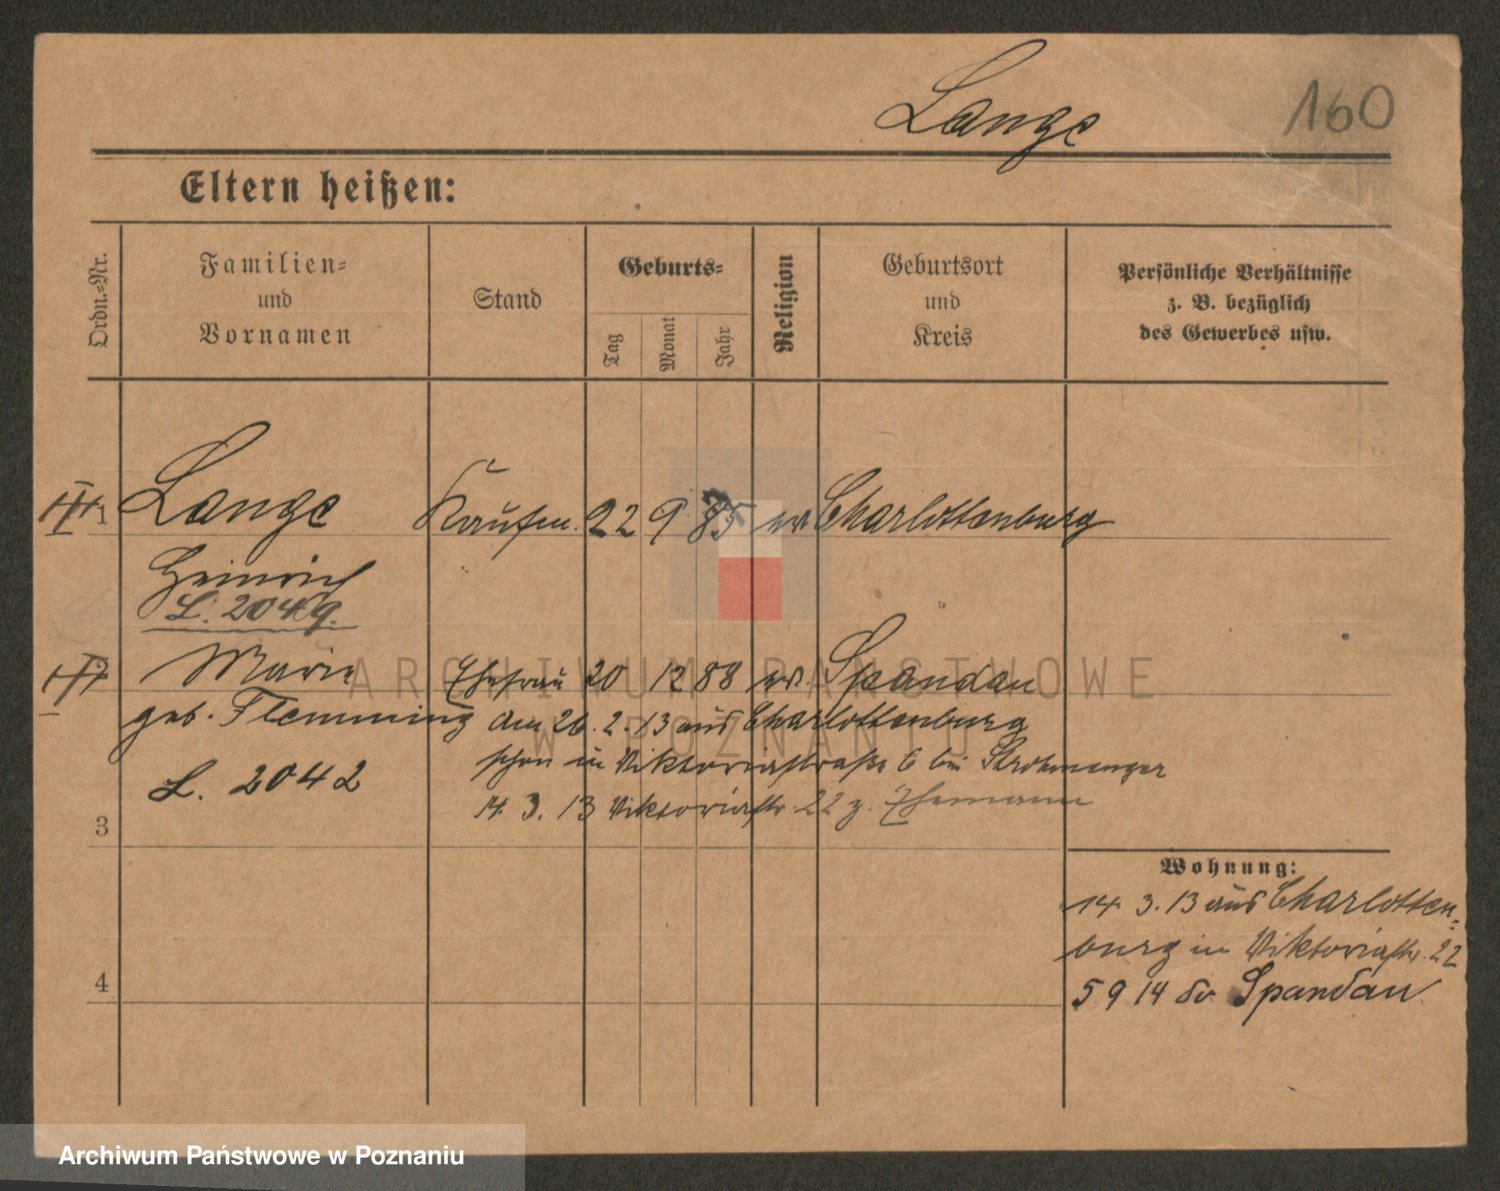 Lange
160
Eltern heißen:
Ordn.-Nr.
Familien-
und
Vornamen
Stand
Geburts-
Tag
Monat
Jahr
Religion
Geburtsort
und
Kreis
Persönliche Verhältnisse
z. B. bezüglich
des Gewerbes usw.
1 Lange Kaufm. 22 9 85 ev Charlottenburg
Heinrich
L. 2049.
2 Marie Ehefrau 20 12 88 ev. Spandau
geb. Flemming am 26.2.13 aus Charlottenburg
schon in Viktoriastraße 6 bei
L. 2042
14. 3. 13 Viktoriastr. 22 z. Ehemann
3
Wohnung:
14. 3. 13 aus Charlotten-
burg in Viktoriastr. 22
4
5 9 14 Spandau
ARCHIWUM PAŃSTWOWE
W POZNANIU
Archiwum Państwowe w Poznaniu